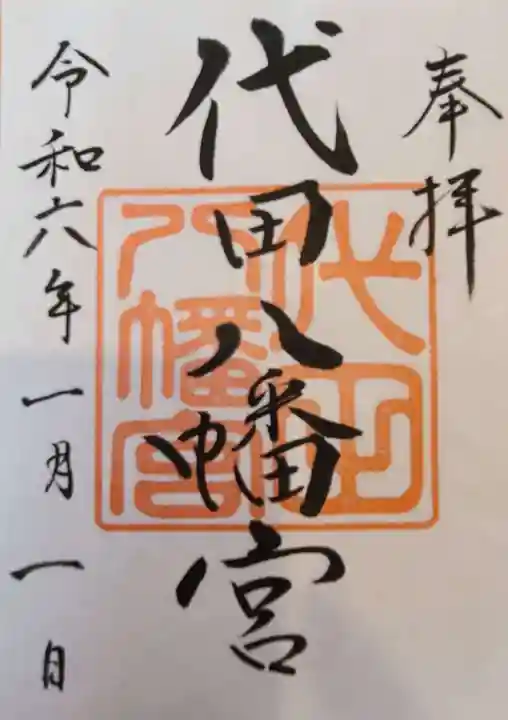 奉拝
代田八幡宮
代田八幡宮
令和六年一月一日